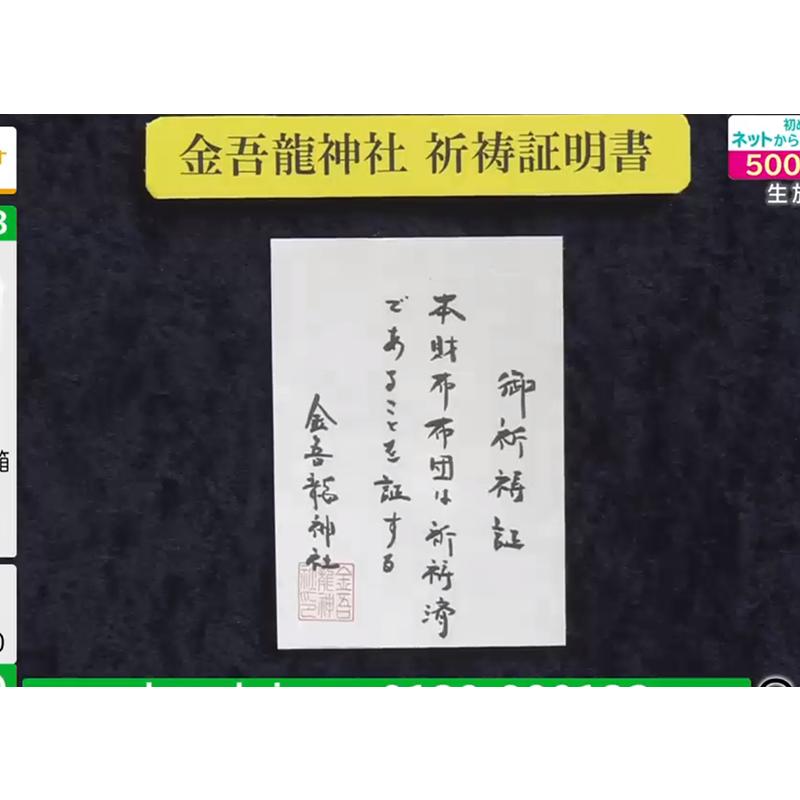 金吾龍神社 祈祷証明書
御祈祷証
本財布布団は祈祷済
であることを証する
金吾龍神社
金吾龍神社印
ネットから
500
箱